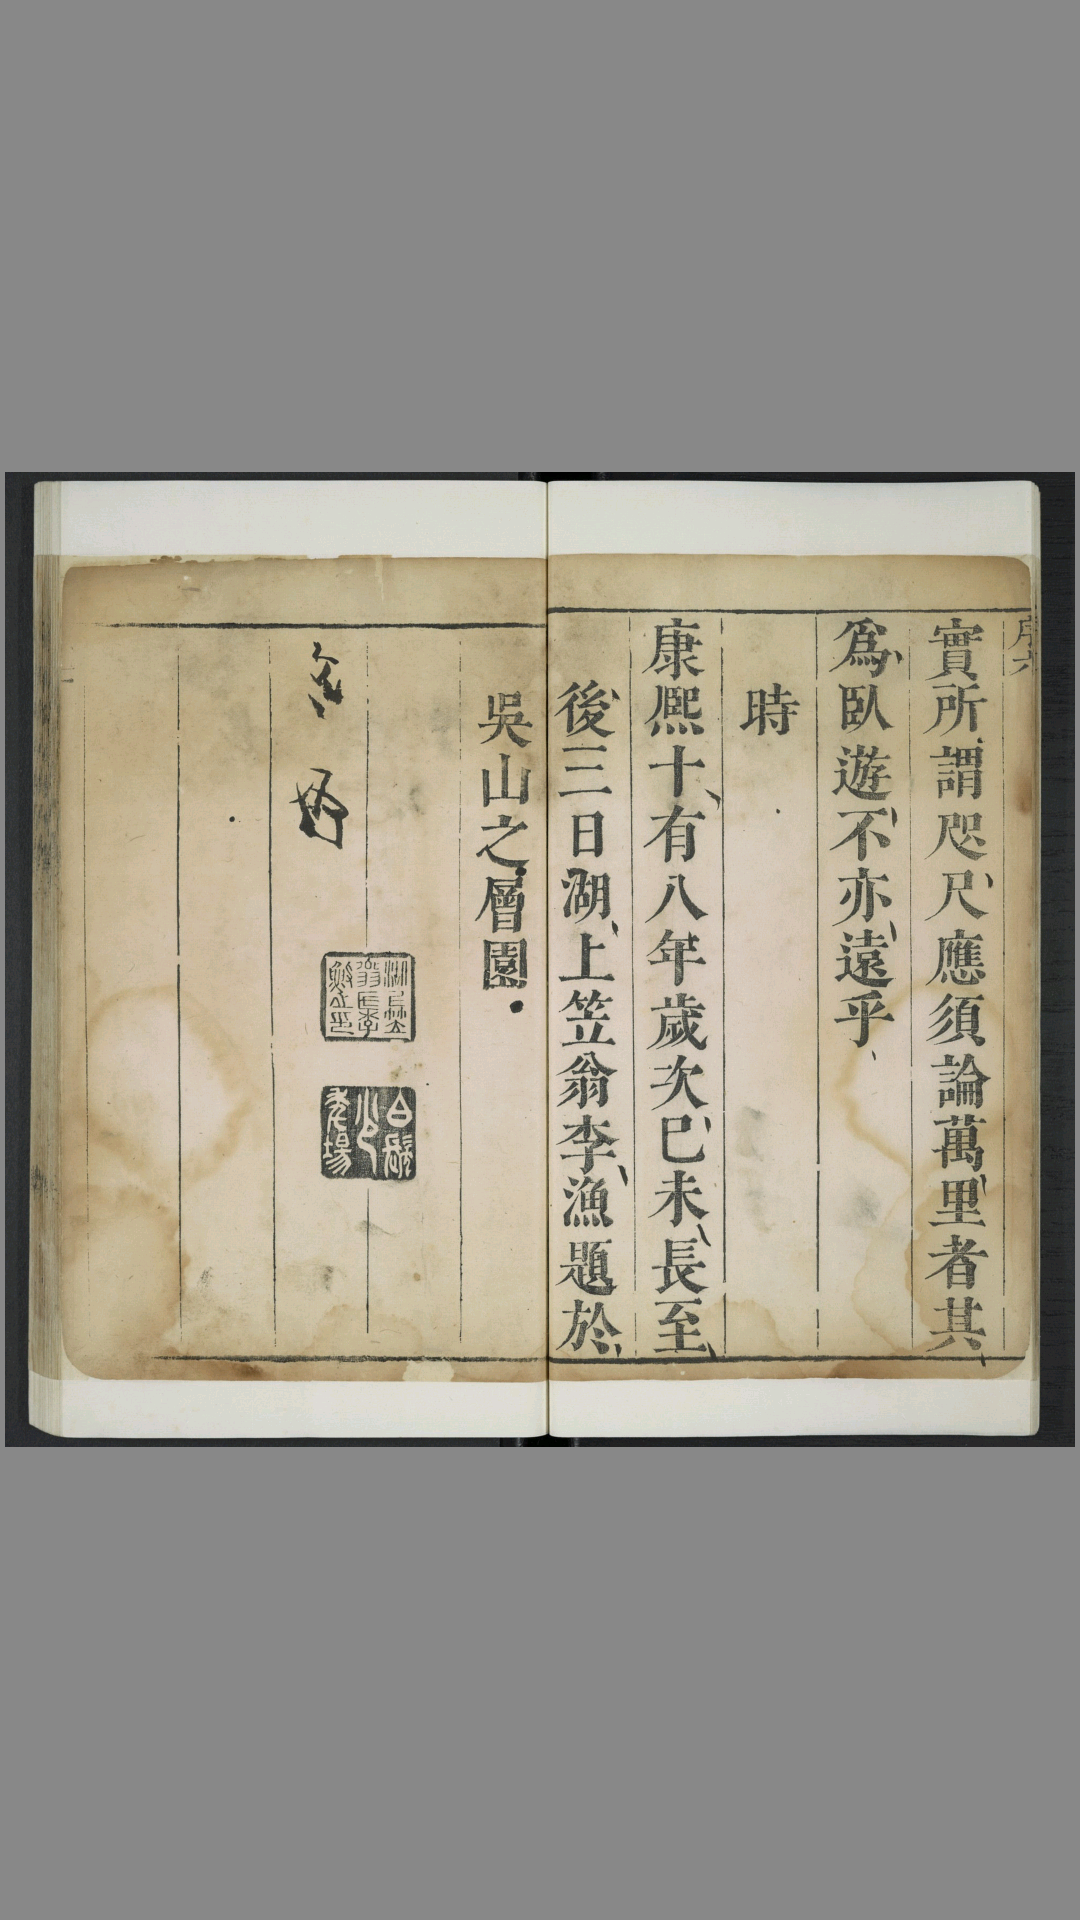 序六
實所謂咫尺應須論萬里者其
爲臥遊不亦遠乎
時
康熙十有八年歲次已未長至
後三日湖上笠翁李漁題於
吳山之層園